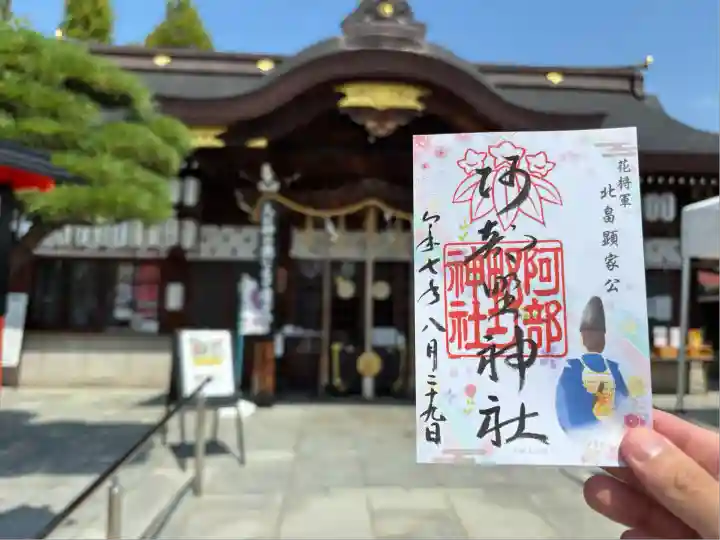 花将軍
北畠顕家公
阿部野神社
阿部野神社
令和七年八月二十九日